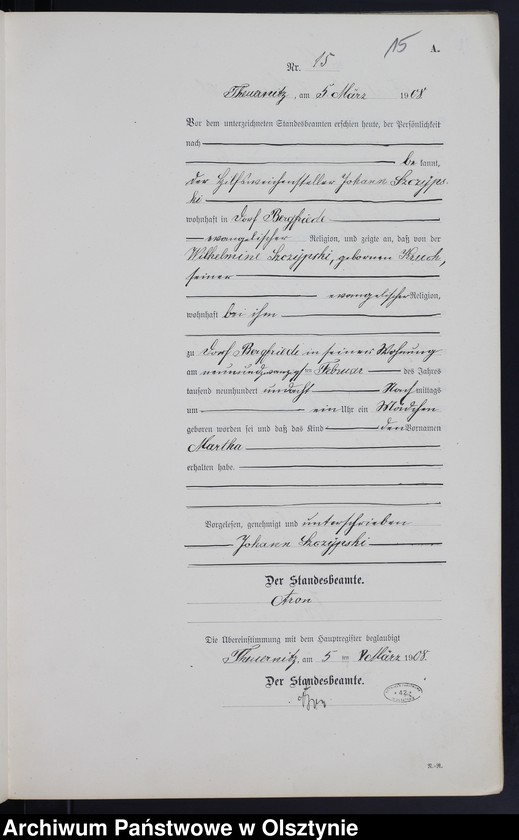 15
A.
Nr. 15
Thurenitz, am 5 März 1908
Vor dem unterzeichneten Standesbeamten erschien heute, der Persönlichkeit
nach
be kannt,
der Hilfsweichensteller Johann Szczyps-
ki
wohnhaft in Dorf Bergfriede
evangelischer Religion, und zeigte an, daß von der
Wilhelmine Szczypski, gebornen
seiner
evangelischer Religion,
wohnhaft bei ihm
zu Dorf Bergfriede in seiner Wohnung
am neunundzwanzigsten Februar des Jahres
tausend neunhundert undacht Nach mittags
um ein Uhr ein Mädchen
geboren worden sei und daß das Kind den Vornamen
Martha
erhalten habe.
Vorgelesen, genehmigt und unterschrieben
Johann Szczypski
Der Standesbeamte.
Aron
Die Übereinstimmung mit dem Hauptregister beglaubigt
Thurenitz, am 5 ten März 1908.
Der Standesbeamte.
Aron
Archiwum Państwowe w Olsztynie